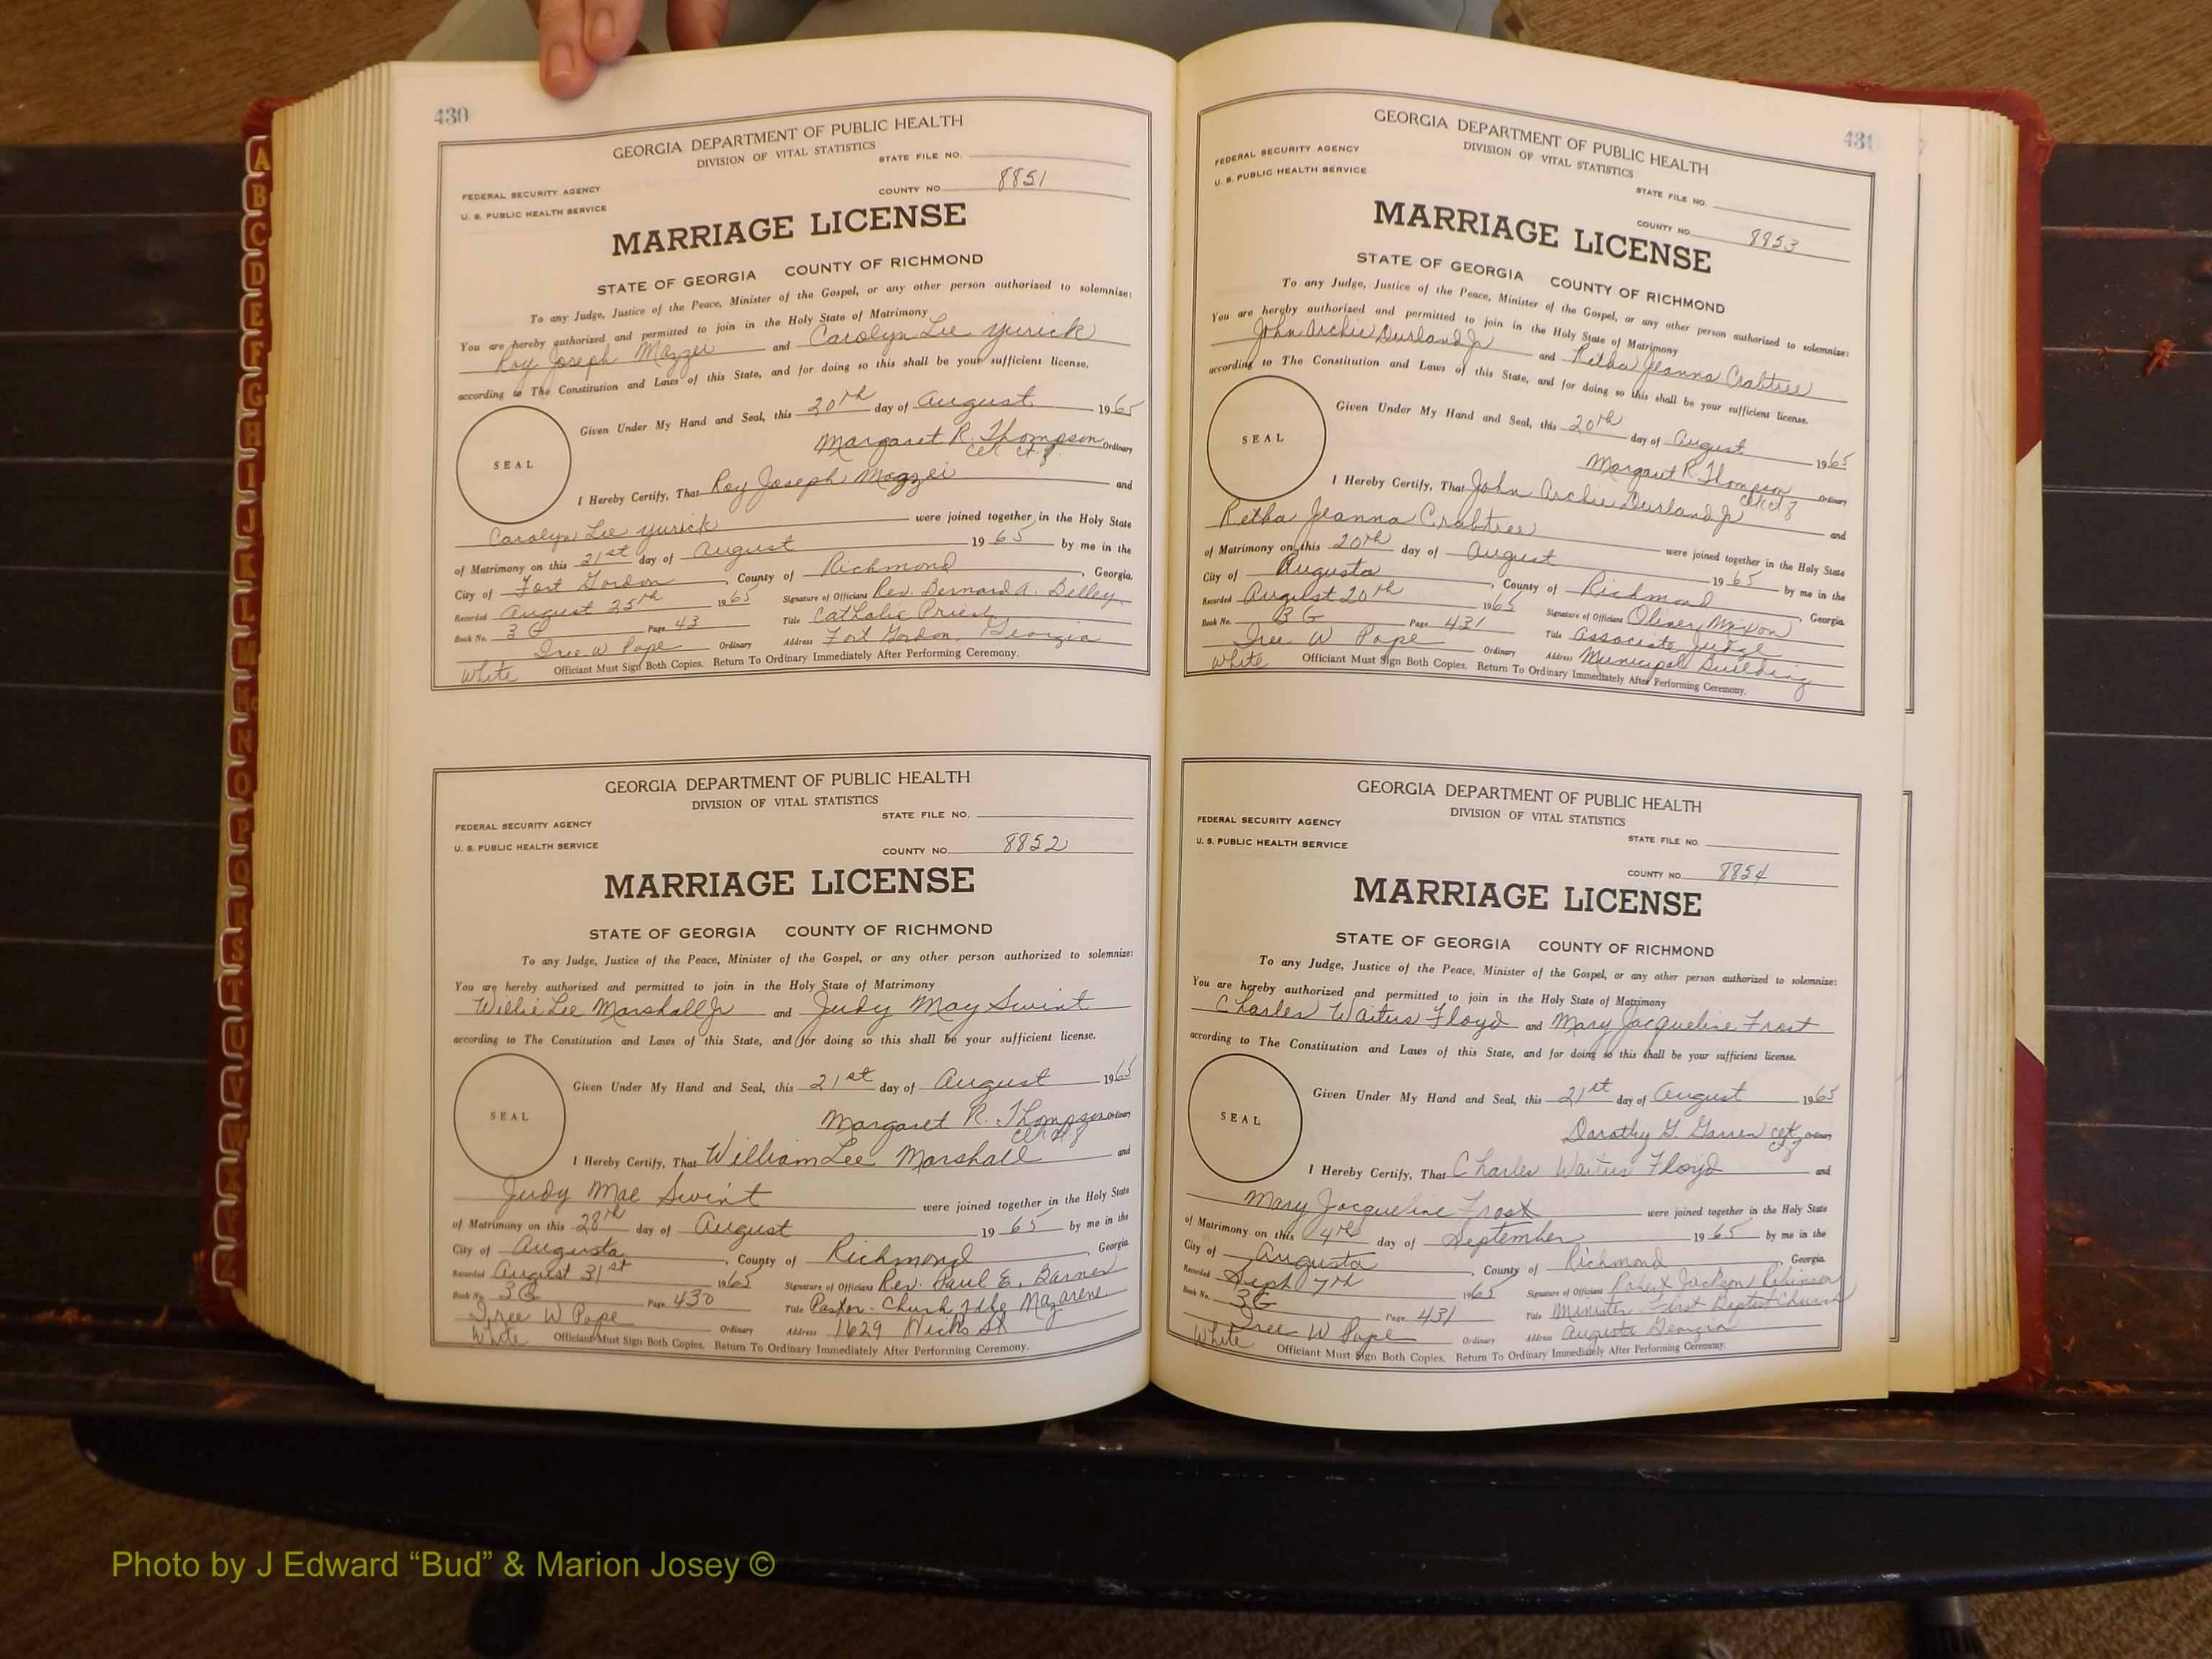 430
GEORGIA DEPARTMENT OF PUBLIC HEALTH
DIVISION OF VITAL STATISTICS
STATE FILE NO.
FEDERAL SECURITY AGENCY
U. S. PUBLIC HEALTH SERVICE
COUNTY NO. 8851
MARRIAGE LICENSE
STATE OF GEORGIA COUNTY OF RICHMOND
To any Judge, Justice of the Peace, Minister of the Gospel, or any other person authorized to solemnize:
You are hereby authorized and permitted to join in the Holy State of Matrimony
Roy Joseph Mazzei and Carolyn Lee Yurick
according to The Constitution and Laws of this State, and for doing so this shall be your sufficient license.
Given Under My Hand and Seal, this 20th day of August 1965
SEAL
Margaret R. Thompson Ordinary
I Hereby Certify, That Roy Joseph Mazzei and
Carolyn Lee Yurick were joined together in the Holy State
of Matrimony on this 21st day of August 1965 by me in the
City of Fort Gordon, County of Richmond, Georgia.
Recorded August 25th 1965 Signature of Officiant Rev. Bernard A.
Book No. 3 G Page 43 Title Catholic Priest
Tree W Pope Ordinary Address Fort Gordon, Georgia
White Officiant Must Sign Both Copies. Return To Ordinary Immediately After Performing Ceremony.
GEORGIA DEPARTMENT OF PUBLIC HEALTH
DIVISION OF VITAL STATISTICS
STATE FILE NO.
FEDERAL SECURITY AGENCY
U. S. PUBLIC HEALTH SERVICE
COUNTY NO. 8852
MARRIAGE LICENSE
STATE OF GEORGIA COUNTY OF RICHMOND
To any Judge, Justice of the Peace, Minister of the Gospel, or any other person authorized to solemnize:
You are hereby authorized and permitted to join in the Holy State of Matrimony
Willie Lee Marshall Jr and Judy May Swint
according to The Constitution and Laws of this State, and for doing so this shall be your sufficient license.
Given Under My Hand and Seal, this 21st day of August 1965
SEAL
Margaret R. Thompson Ordinary
I Hereby Certify, That William Lee Marshall and
Judy Mae Swint were joined together in the Holy State
of Matrimony on this 28th day of August 1965 by me in the
City of Augusta, County of Richmond, Georgia
Recorded August 31st 1965 Signature of Officiant Rev. Paul E. Barnes
Book No. 3G Page 430 Title Pastor - Church of the Nazarene
Tree W Pope Ordinary Address 1629 St
White Officiant Must Sign Both Copies. Return To Ordinary Immediately After Performing Ceremony.
431
GEORGIA DEPARTMENT OF PUBLIC HEALTH
DIVISION OF VITAL STATISTICS
FEDERAL SECURITY AGENCY
U. S. PUBLIC HEALTH SERVICE
STATE FILE NO.
COUNTY NO. 8953
MARRIAGE LICENSE
STATE OF GEORGIA COUNTY OF RICHMOND
To any Judge, Justice of the Peace, Minister of the Gospel, or any other person authorized to solemnize:
You are hereby authorized and permitted to join in the Holy State of Matrimony
John Archie Durland Jr and Retha Jeanna Crabtree
according to The Constitution and Laws of this State, and for doing so this shall be your sufficient license.
Given Under My Hand and Seal, this 20th day of August 1965
SEAL
Margaret R. Thompson Ordinary
I Hereby Certify, That John Archie Durland Jr and
Retha Jeanna Crabtree were joined together in the Holy State
of Matrimony on this 20th day of August 1965 by me in the
City of Augusta, County of Richmond, Georgia.
Recorded August 20th 1965 Signature of Officiant Oliver Mixon
Book No. 3 G Page 431 Title Associate Judge
Tree W Pope Ordinary Address Municipal Building
White Officiant Must Sign Both Copies. Return To Ordinary Immediately After Performing Ceremony.
GEORGIA DEPARTMENT OF PUBLIC HEALTH
DIVISION OF VITAL STATISTICS
FEDERAL SECURITY AGENCY
STATE FILE NO.
U. S. PUBLIC HEALTH SERVICE
COUNTY NO. 8854
MARRIAGE LICENSE
STATE OF GEORGIA COUNTY OF RICHMOND
To any Judge, Justice of the Peace, Minister of the Gospel, or any other person authorized to solemnize:
You are hereby authorized and permitted to join in the Holy State of Matrimony
Charles Waitus Floyd and Mary Jacqueline Frost
according to The Constitution and Laws of this State, and for doing so this shall be your sufficient license.
Given Under My Hand and Seal, this 21st day of August 1965
SEAL
Dorothy G. Ordinary
I Hereby Certify, That Charles Waitus Floyd and
Mary Jacqueline Frost were joined together in the Holy State
of Matrimony on this 4th day of September 1965 by me in the
City of Augusta, County of Richmond, Georgia
Recorded Sept 7th 1965 Signature of Officiant Robert Jackson Robinson
Book No. 3G Page 431 Title Minister First Baptist Church
Tree W Pope Ordinary Address Augusta Georgia
White Officiant Must Sign Both Copies. Return To Ordinary Immediately After Performing Ceremony.
A
B
C
D
E
F
G
H
I
J
K
L
M
Mc
N
O
P
Q
R
S
T
U
V
W
X
Y
Z
Photo by J Edward “Bud” & Marion Josey ©